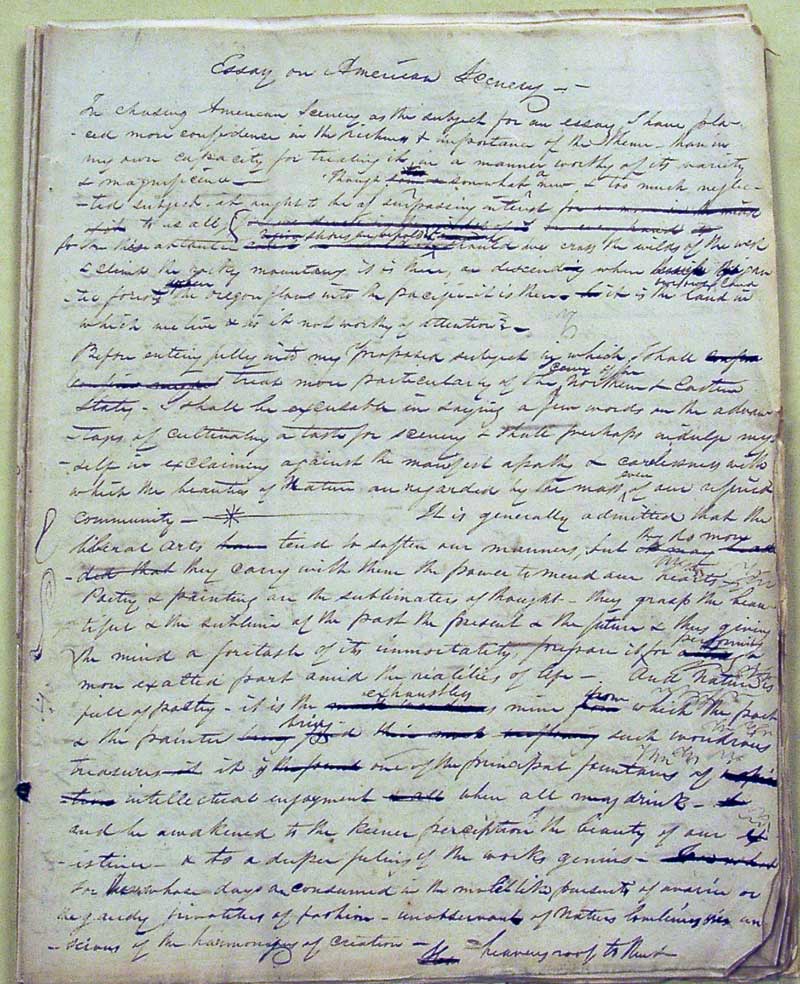 Essay on American Scenery —
In chosing American Scenery as the subject for an essay I have pla-
-ced more confidence in the richness & importance of the Theme than in
my own capacity for treating it in a manner worthy of its variety
& magnificence — Though a somewhat new & too much neglec-
-ted subject, it ought to be of surpassing interest
to us all
for the should we cross the wilds of the west
& climb the rocky mountains it is there, or descending where
the forests the Oregon flows into the pacific it is there it is the land in
which we live & is it not worthy of attention? —
Before entering fully into my proposed subject in which I shall
treat more particularly of the scenery of the Northern & Eastern
States — I shall be excusable in saying a few words on the advan-
-tages of cultivating a taste for scenery & shall perhaps indulge my-
-self in exclaiming against the manifest apathy & carelessness with
which the beauties of nature are regarded by the mass even of our refined
community — It is generally admitted that the
liberal arts tend to soften our manners, but they do more
they carry with them the power to mend our hearts
Poetry & painting are the sublimaters of thought — they grasp the beau-
-tiful & the sublime of the past the present & the future & thus giving
the mind a foretaste of its immortality, prepare it for performing a
more exalted part amid the realities of life — And Nature is
full of poetry — it is the exhaustless mine from which the poet
& the painter bring such wondrous
treasures it is one of the principal fountains of
intellectual enjoyment where all may drink —
and be awakened to the keener perception of the beauty of our ex-
-istence — & to a deeper feeling of the works genius —
For those whose days are consumed in the pursuits of avarice or
the gaudy frivolities of fashion — unobservant of natures loveliness are un-
-scious of the harmony of creation — heavens roof to them